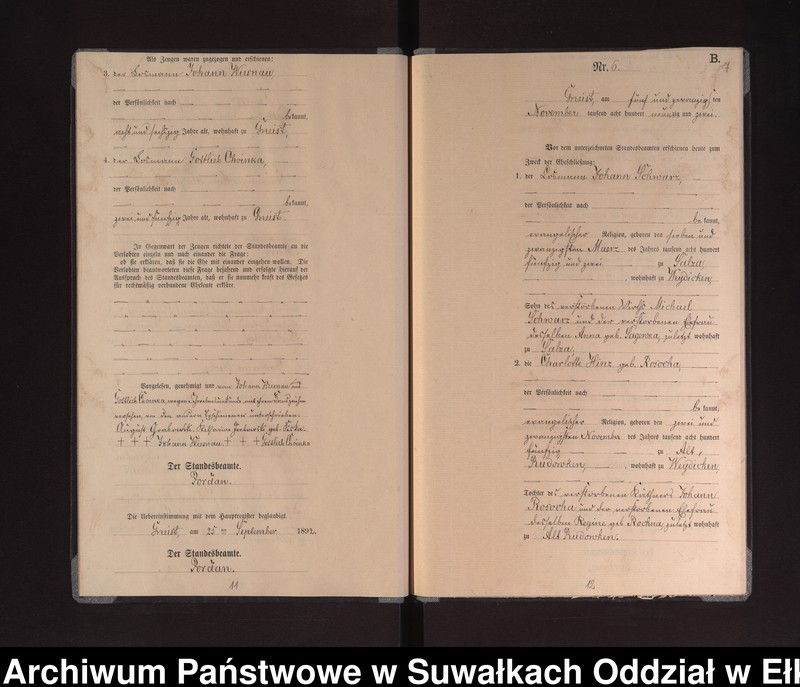 Als Zeugen waren zugezogen und erschienen:
3. der Losmann Johann Wiernau
der Persönlichkeit nach
bekannt,
acht und sechszig Jahre alt, wohnhaft zu Gneist,
4. der Losmann Gottlieb Choinka,
der Persönlichkeit nach
bekannt,
zwei und fünfzig Jahre alt, wohnhaft zu Gneist.
In Gegenwart der Zeugen richtete der Standesbeamte an die
Verlobten einzeln und nach einander die Frage:
ob sie erklären, daß sie die Ehe mit einander eingehen wollen. Die
Verlobten beantworteten diese Frage bejahend und erfolgte hierauf der
Ausspruch des Standesbeamten, daß er sie nunmehr kraft des Gesetzes
für rechtmäßig verbundene Eheleute erkläre.
Vorgelesen, genehmigt und von Johann Wiernau und
Gottlieb Choinka, wegen Schreibensunkunde mit ihren Handzeichen
versehen, von den anderen Erschienenen unterschrieben.
August Grabowski. geb.
+ + + Johann Wiernau. + + + Gottlieb Choinka
Der Standesbeamte.
Jordan.
Die Uebereinstimmung mit dem Hauptregister beglaubigt.
Gneist, am 25 ten September 1892.
Der Standesbeamte.
Jordan.
11
B.
Nr. 6.
7
Gneist, am fünf und zwanzigsten
November tausend acht hundert neunzig und zwei
Vor dem unterzeichneten Standesbeamten erschienen heute zum
Zweck der Eheschließung:
1. der Losmann Johann Schwarz,
der Persönlichkeit nach
bekannt,
evangelischer Religion, geboren den sieben und
zwanzigsten Maerz des Jahres tausend acht hundert
fünfzig und zwei zu Salza
, wohnhaft zu Weydicken
Sohn des verstorbenen Wirths Michael
Schwarz und der verstorbenen Ehefrau
desselben Anna geb. Sagorza, zuletzt wohnhaft
zu Salza.
2. die Charlotte Hinz geb. Rosocha,
der Persönlichkeit nach
bekannt,
evangelischer Religion, geboren den zwei und
zwanzigsten November des Jahres tausend acht hundert
fünfzig zu Alt
Rudowken, , wohnhaft zu Weydicken
Tochter des verstorbenen Käthners Johann
Rosocha und der verstorbenen Ehefrau
desselben Regine geb. Rochna, zuletzt wohnhaft
zu Alt Rudowken.
12.
Archiwum Państwowe w Suwałkach Oddział w Eł